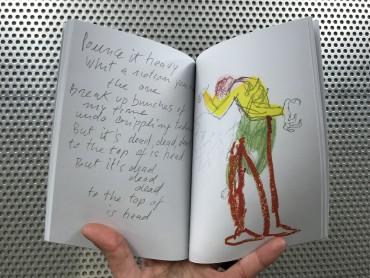 Pounce it heavy
What a notion you
the one
break up bunches of
my time
undo crippling
But it's dead dead dead
to the top of is head
But it's dead
dead
dead
to the top of
is head